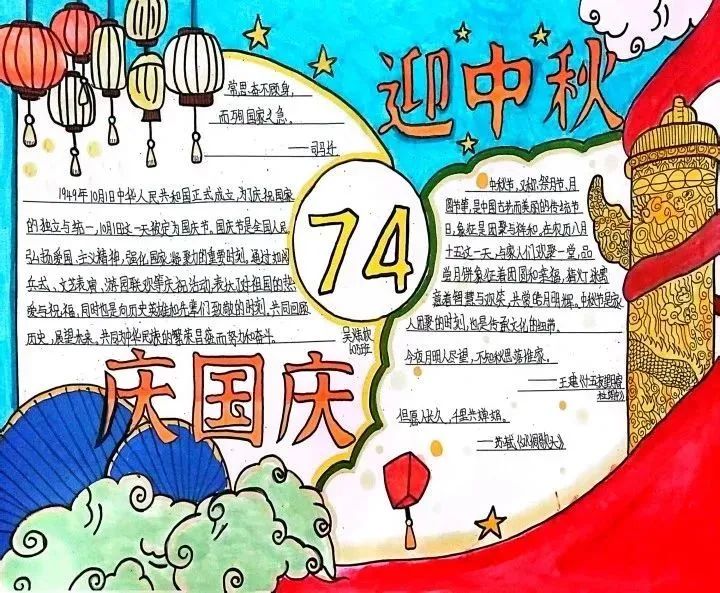 迎中秋
常思奋不顾身，
而殉国家之急。
——司马迁
1949年10月1日中华人民共和国正式成立，为了庆祝国家
的独立与统一，10月1日这一天被定为国庆节。国庆节是全国人民
弘扬爱国主义精神，强化国家凝聚力的重要时刻。通过如阅
兵式、文艺表演、游园联欢等庆祝活动，表达了对祖国的热
爱与祝福，同时也是向历史英雄和先辈们致敬的时刻，共同回顾
历史，展望未来，共同为中华民族的繁荣昌盛而努力和奋斗。
103班
74
庆国庆
中秋节，又称祭月节、月
圆节等，是中国古老而美丽的传统节
日，象征是团聚与祥和，在农历八月
十五这一天，与家人们欢聚一堂，品
尝月饼象征着团圆和幸福，猜灯谜
着智慧与欢笑，共赏皓月明辉。中秋节是家
人团聚的时刻，也是传承文化的纽带。
今夜月明人尽望，不知秋思落谁家。
——王建《十五夜望月寄
杜郎中》
但愿人长久，千里共婵娟。
——苏轼《水调歌头》